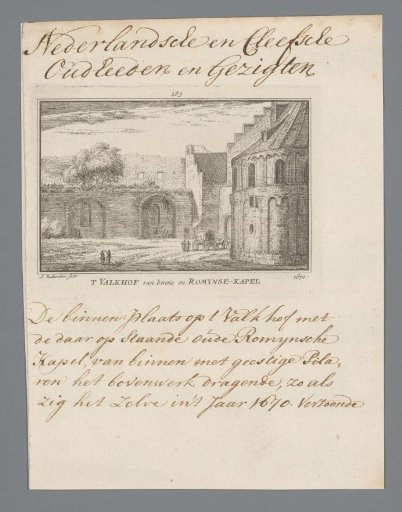 Nederlandsche en Cleefsche
Oudheeden en Gezigten
283
A. Rademaker fecit
T VALKHOF van binne en ROMYNSE-KAPEL
1670
De binnen plaats op t Valk hof met
de daar op staande oude Romynsche
Kapel, van binnen met geestige Pila,
ren het bovenwerk dragende, zo als
zig het Zelve in't Jaar 1670. Vertoonde